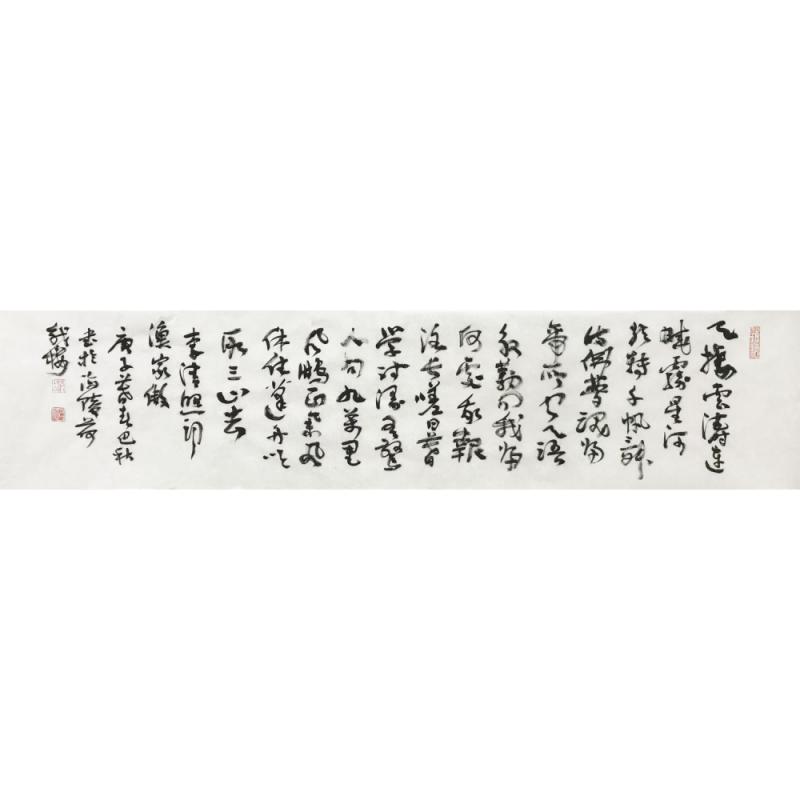 天接雲濤連
曉霧星河
欲轉千帆舞
仿佛夢魂歸
帝所聞天語
殷勤问我歸
何處我報
路長嗟日暮
学詩漫有驚
人句九萬里
風鵬正舉風
休住蓬舟吹
取三山去
李清照詞
漁家傲
庚子暮春巴秋
書於海陵荷